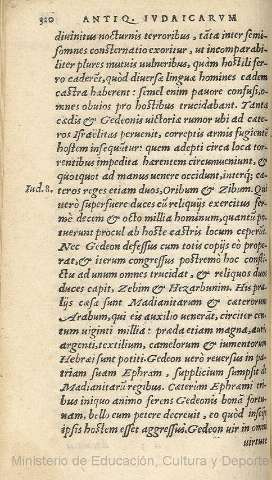 320 ANTIQ. IVDAICARVM
diuinitus nocturnis terroribus, tāta inter semi-
somnes consternatio exoritur, ut incomparabi-
liter plures mutuis uulneribus, quàm hostili fer-
ro caderēt, quòd diuersæ linguæ homines eadem
castra haberent: semel enim pauore confusi, o-
mnes obuios pro hostibus trucidabant. Tanta
cædis & Gedeonis uictoria rumor ubi ad cate-
ros Israëlitas peruenit, correptis armis fugientē
hostem insequūtur: quem adepti circa loca tor-
rentibus impedita harentem circumueniunt, &
quotquot ad manus uenere occidunt, interq; ca-
Iud. 8. teros reges etiam duos, Oribum & Zibum. Qui
uerò superfuere duces cū reliquijs exercitus fer-
mè decim & octo millia hominum, quantū po-
tuerunt procul ab hoste castris locum ceperūt.
Nec Gedeon defessus cum totis copijs eò prope-
rat, & iterum congressus postremò hoc confli-
ctu ad unum omnes trucidat, & reliquos duos
duces capit, Zebim & Hezarbunim. His præ-
lijs cæsa sunt Madianitarum & caterorum
Arabum, qui eis auxilio uenerāt, circiter cen-
tum uiginti millia: præda etiam magna, auri,
argenti, textilium, camelorum & iumentorum
Hebræi sunt potiti. Gedeon uerò reuersus in pa-
triam suam Ephram, supplicium sumpsit de
Madianitarū regibus. Caterùm Ephraimi tri-
bus iniquo animo ferens Gedeonis bonā fortu-
nam, bello eum petere decreuit, eo quòd inscijs
ipsis hostem esset aggressus. Gedeon uir in omni
uirtute
Ministerio de Educación, Cultura y Deporte